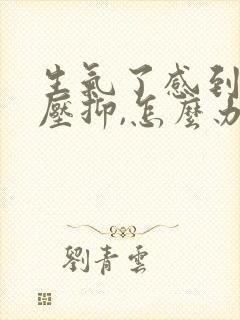 生氣了感到
壓抑,怎麼办
劉青雲